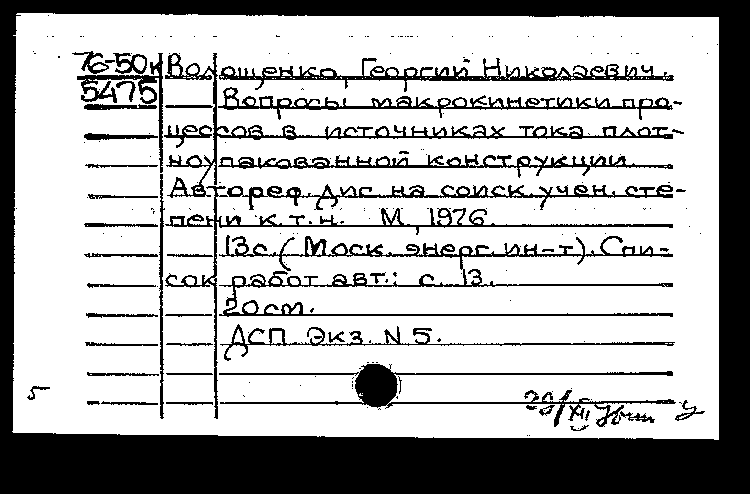 76-50к Волощенко, Георгий Николаевич.
5475 Вопросы макрокинетики про-
цессов в источниках тока плот-
ноупакованной конструкции.
Автореф. дис. на соиск. учен. сте-
пени к.т.н. М., 1976.
13с. (Моск. энерг. ин-т). Спи-
сок работ авт.: с. 13.
20см.
ДСП. Экз. N 5.
5